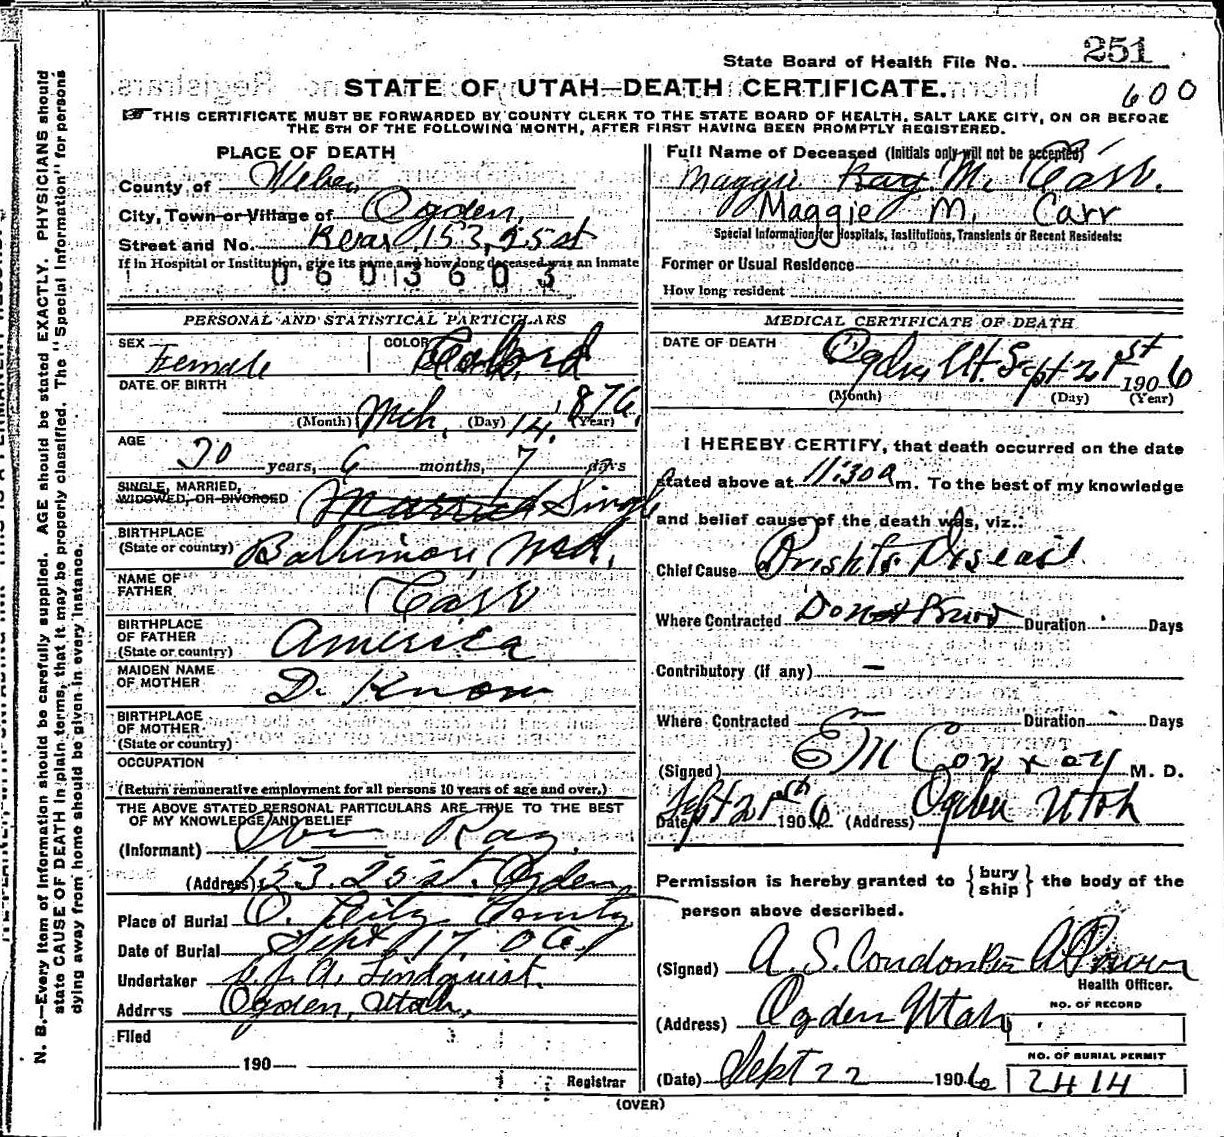 State Board of Health File No. 251
STATE OF UTAH—DEATH CERTIFICATE.
600
THIS CERTIFICATE MUST BE FORWARDED BY COUNTY CLERK TO THE STATE BOARD OF HEALTH, SALT LAKE CITY, ON OR BEFORE
THE 5TH OF THE FOLLOWING MONTH, AFTER FIRST HAVING BEEN PROMPTLY REGISTERED.
PLACE OF DEATH
County of Weber
City, Town or Village of Ogden,
Street and No. Rear 153, 25 st
If in Hospital or Institution, give its name and how long deceased was an inmate
0603603
PERSONAL AND STATISTICAL PARTICULARS
SEX Female
COLOR
DATE OF BIRTH
(Month) Mch. (Day) 14. (Year) 1876.
AGE
30 years, 6 months, 7 days
SINGLE, MARRIED,
WIDOWED, OR DIVORCED Married Single
BIRTHPLACE
(State or country) Baltimore, Md.
NAME OF
FATHER Carr
BIRTHPLACE
OF FATHER
(State or country) America
MAIDEN NAME
OF MOTHER D. Know
BIRTHPLACE
OF MOTHER
(State or country)
OCCUPATION
(Return remunerative employment for all persons 10 years of age and over.)
THE ABOVE STATED PERSONAL PARTICULARS ARE TRUE TO THE BEST
OF MY KNOWLEDGE AND BELIEF
(Informant) Ray,
(Address) 153. 25 st. Ogden,
Place of Burial O. City
Date of Burial Sept
Undertaker Lindquist.
Address Ogden, Utah.
Filed
190
Registrar
Full Name of Deceased (Initials only will not be accepted)
Maggie Ray M. Carr.
Maggie M. Carr
Special Information for Hospitals, Institutions, Transients or Recent Residents:
Former or Usual Residence
How long resident
MEDICAL CERTIFICATE OF DEATH
DATE OF DEATH Ogden Ut. Sept 21st 1906
(Month) (Day) (Year)
I HEREBY CERTIFY, that death occurred on the date
stated above at 11:30 a m. To the best of my knowledge
and belief cause of the death was, viz.:
Chief Cause Brights Disease
Where Contracted Do not Know Duration Days
Contributory (if any) –
Where Contracted – Duration Days
(Signed) E M Conroy M. D.
Date Sept 21st 1906 (Address) Ogden Utah
Permission is hereby granted to {bury
ship} the body of the
person above described.
(Signed) A. S. Condon Per
Health Officer.
(Address) Ogden Utah
NO. OF RECORD
(Date) Sept 22 1906
NO. OF BURIAL PERMIT
2414
(OVER)
N. B.—Every item of information should be carefully supplied. AGE should be stated EXACTLY. PHYSICIANS should
state CAUSE OF DEATH in plain terms, that it may be properly classified. The "Special Information" for persons
dying away from home should be given in every instance.